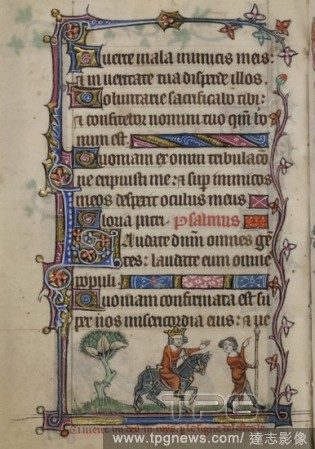 Auerte mala inimicis meis:
& in ueritate tua disperde illos.
Voluntarie sacrificabo tibi:
& confitebor nomini tuo qm̄ bo
num est.
Quoniam ex omni tribulacō
ne eripuisti me: & sup̄ inimicos
meos despexit oculus meus
Gloria patri. Psalmus
Laudate dn̄m omnes gē
tes: laudate eum omnes
populi.
Quoniam confirmata est su
per nos misericordia eius: & ue
TPG
www.tpgnews.com/ 達志影像